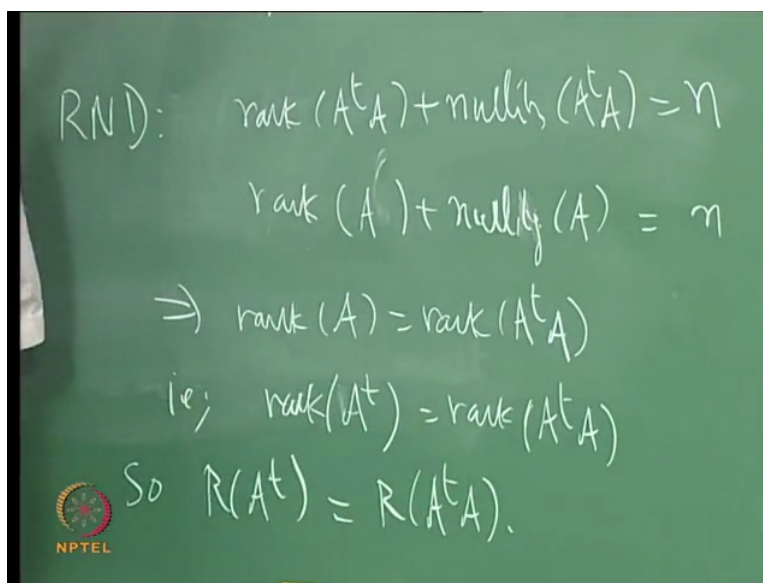 RND: rank (AᵗA) + nullity (AᵗA) = n
rank (A) + nullity (A) = n
⇒ rank (A) = rank (AᵗA)
ie; rank (Aᵗ) = rank (AᵗA)
So R(Aᵗ) = R(AᵗA).
NPTEL